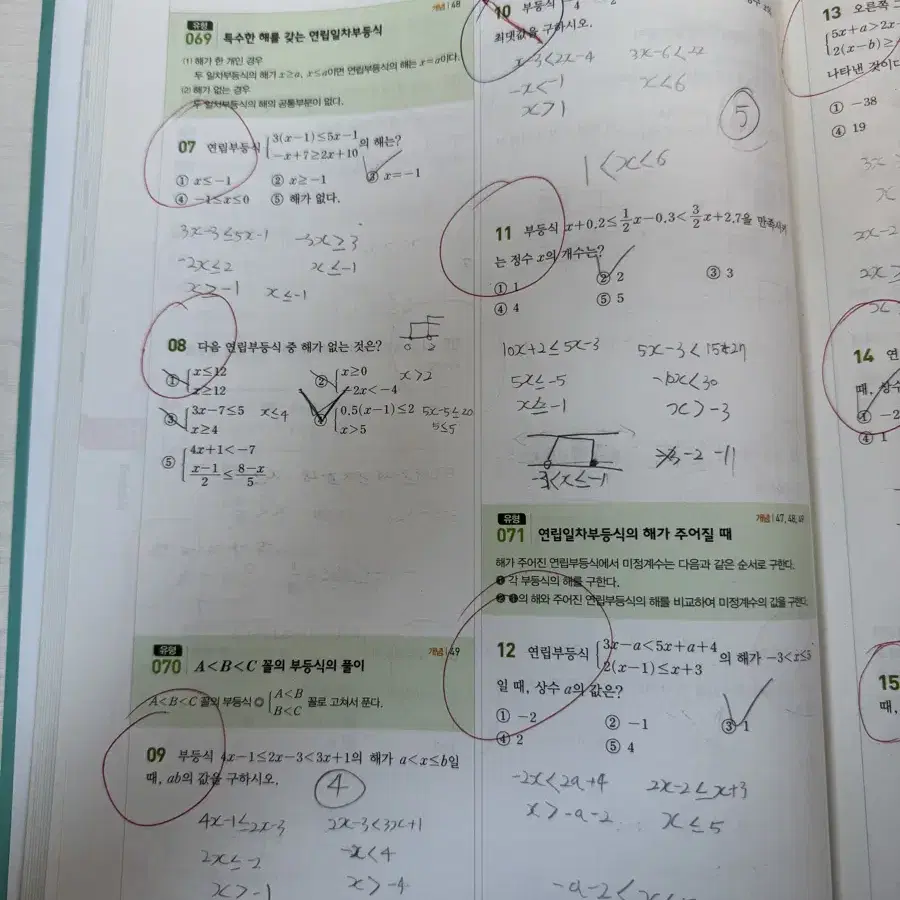 개념 | 48
유형
069 특수한 해를 갖는 연립일차부등식
(1) 해가 한 개인 경우
두 일차부등식의 해가 x≥a, x≤a이면 연립부등식의 해는 x=a이다.
(2) 해가 없는 경우
두 일차부등식의 해의 공통부분이 없다.
07 연립부등식 {3(x-1)≤5x-1
-x+7≥2x+10 의 해는?
① x≤-1 ② x≥-1 ③ x=-1
④ -1≤x≤0 ⑤ 해가 없다.
3x-3≤5x-1 -3x≥3
-2x≤2 x≤-1
x≥-1 x≤-1
08 다음 연립부등식 중 해가 없는 것은?
0 2
x>2
① {x≤12
x≥12
② {x≥0
-2x<-4
③ {3x-7≤5
x≥4
x≤4
④ {0.5(x-1)≤2
x>5
5x-5≤20
5≤5
⑤ {4x+1<-7
x-1/2≤8-x/5
유형
070 A<B<C 꼴의 부등식의 풀이
개념 | 49
A<B<C 꼴의 부등식 ◎ {A<B
B<C 꼴로 고쳐서 푼다.
09 부등식 4x-1≤2x-3<3x+1의 해가 a<x≤b일
때, ab의 값을 구하시오.
4
4x-1≤2x-3 2x-3<3x+1
2x≤-2 -x<4
x>-1 x>-4
10 부등식
최댓값을 구하시오.
x-3<2x-4
-x<-1 x<6
x>1
5
1<x<6
11 부등식 x+0.2≤1/2x-0.3<3/2x+2.7을 만족시키
는 정수 x의 개수는?
① 1 ② 2 ③ 3
④ 4 ⑤ 5
10x+2≤5x-3 5x-3<15x+27
5x≤-5 -10x<30
x≤-1 x>-3
-2 -1
-3<x≤-1
유형
071 연립일차부등식의 해가 주어질 때
개념 | 47, 48, 49
해가 주어진 연립부등식에서 미정계수는 다음과 같은 순서로 구한다.
❶ 각 부등식의 해를 구한다.
❷ ❶의 해와 주어진 연립부등식의 해를 비교하여 미정계수의 값을 구한다.
12 연립부등식 {3x-a<5x+a+4
2(x-1)≤x+3 의 해가 -3<x≤5
일 때, 상수 a의 값은?
① -2 ② -1 ③ 1
④ 2 ⑤ 4
-2x<2a+4 2x-2≤x+3
x>-a-2 x≤5
-a-2<x
13 오른쪽
{5x+a>2x-
2(x-b)≥
나타낸 것이다
① -38
④ 19
14 연
때, 상수
① -2
④ 1
15
때,